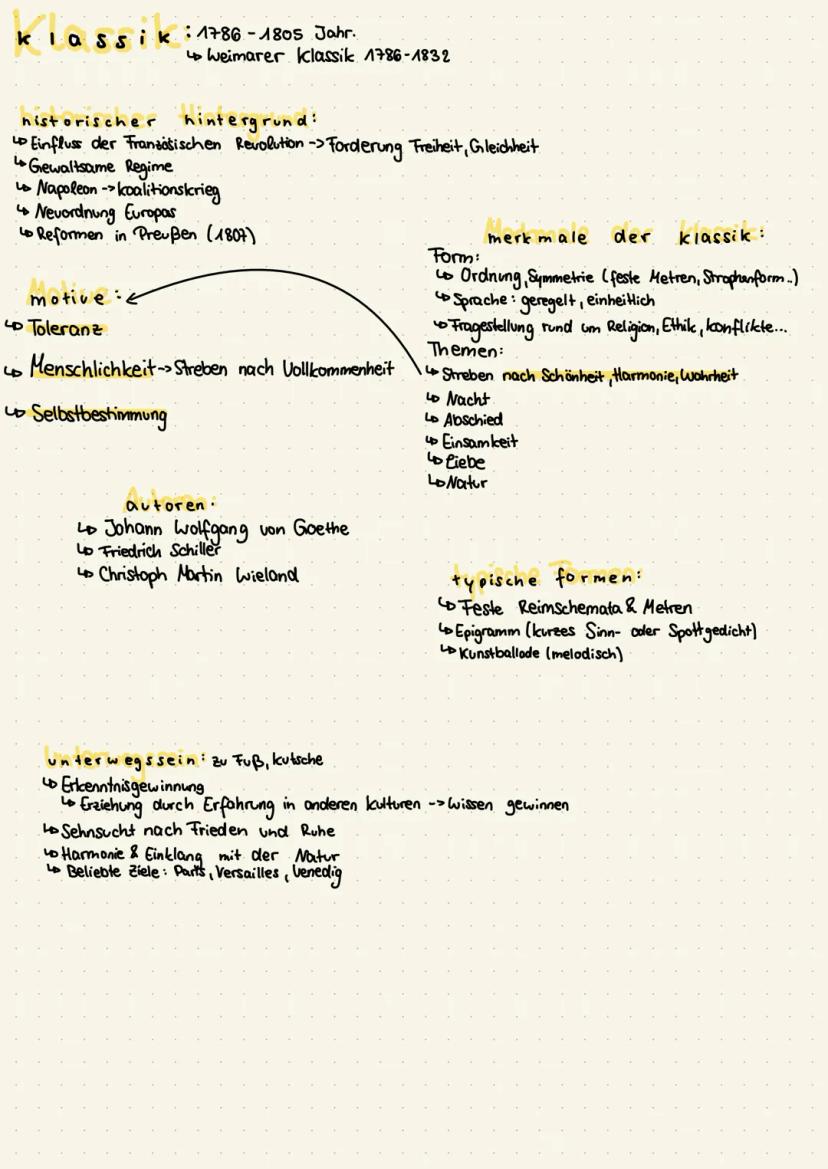 klassik: 1786-1805 Jahr.
↳ Weimarer Klassik 1786-1832
historischer hintergrund:
↳ Einfluss der Französischen Revolution -> Forderung Freiheit, Gleichheit
↳ Gewaltsame Regime
↳ Napoleon -> Koalitionskrieg
↳ Neuordnung Europas
↳ Reformen in Preußen (1807)
motive:
↳ Toleranz
↳ Menschlichkeit -> Streben nach Vollkommenheit
↳ Selbstbestimmung
merkmale der klassik:
Form:
↳ Ordnung, Symmetrie (feste Metren, Strophenform..)
↳ Sprache: geregelt, einheitlich
↳ Fragestellung rund um Religion, Ethik, Konflikte...
Themen:
↳ Streben nach Schönheit, Harmonie, Wahrheit
↳ Nacht
↳ Abschied
↳ Einsamkeit
↳ Liebe
↳ Natur
autoren:
↳ Johann Wolfgang von Goethe
↳ Friedrich Schiller
↳ Christoph Martin Wieland
typische formen:
↳ Feste Reimschemata & Metren
↳ Epigramm (kurzes Sinn- oder Spottgedicht)
↳ Kunstballade (melodisch)
unterwegssein: zu Fuß, Kutsche
↳ Erkenntnisgewinnung
↳ Erziehung durch Erfahrung in anderen Kulturen -> Wissen gewinnen
↳ Sehnsucht nach Frieden und Ruhe
↳ Harmonie & Einklang mit der Natur
↳ Beliebte Ziele: Paris, Versailles, Venedig